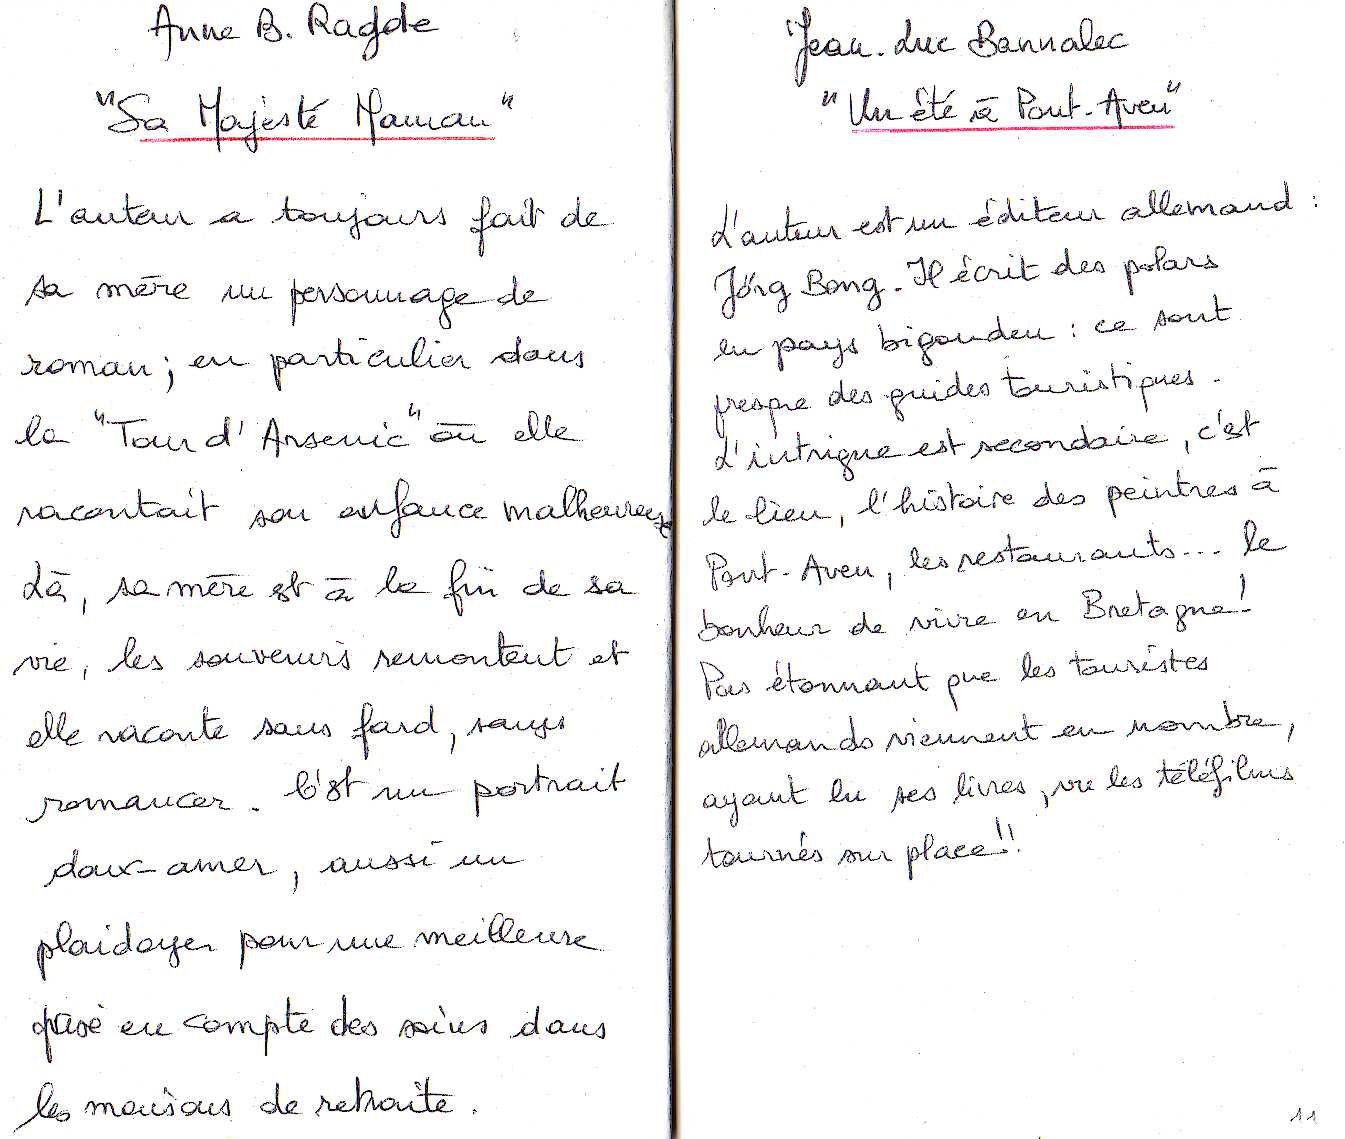 Anne B. Ragde
"Sa Majesté Maman"
L'auteur a toujours fait de
sa mère un personnage de
roman ; en particulier dans
la "Tour d'Arsenic" où elle
racontait son enfance malheureuse
Là, sa mère est à la fin de sa
vie, les souvenirs remontent et
elle raconte sans fard, sans
romancer. C'est un portrait
doux-amer, aussi un
plaidoyer pour une meilleure
prise en compte des soins dans
les maisons de retraite.
Jean-Luc Bannalec
"Un été à Pont-Aven"
L'auteur est un éditeur allemand :
Jörg Bong. Il écrit des polars
en pays bigouden : ce sont
presque des guides touristiques.
L'intrigue est secondaire, c'est
le lieu, l'histoire des peintres à
Pont-Aven, les restaurants... le
bonheur de vivre en Bretagne!
Pas étonnant que les touristes
allemands viennent en nombre,
ayant lu ses livres, vu les téléfilms
tournés sur place!!
11